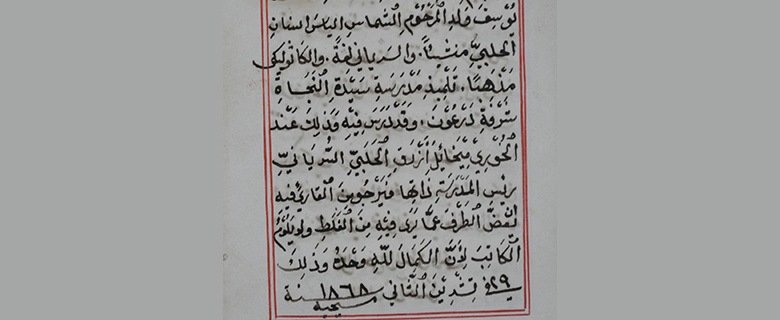 يوسف ولد المرحوم الشماس الياس اسنان
الحلبيّ منشيئاً. والسرياني لغةً. والكاثوليكى
مذهبًا. تلميذ مدرسة سيّدة النجاة
شرفة درعون. وقد درس فيه وذلك عند
الخوري ميخائيل أزرق الحلبيّ السريانيّ
ريس المدرسة ذاتها ويرجو من القاري فيه
ان يغضّ الطرف عمّا يرى فيه من الغلط ولا يلوم
الكاتب لأنّ الكمال للّه وحدهُ وذلك
في ٢٩ تشرين الثاني سنة ١٨٦٨
مسيحيه